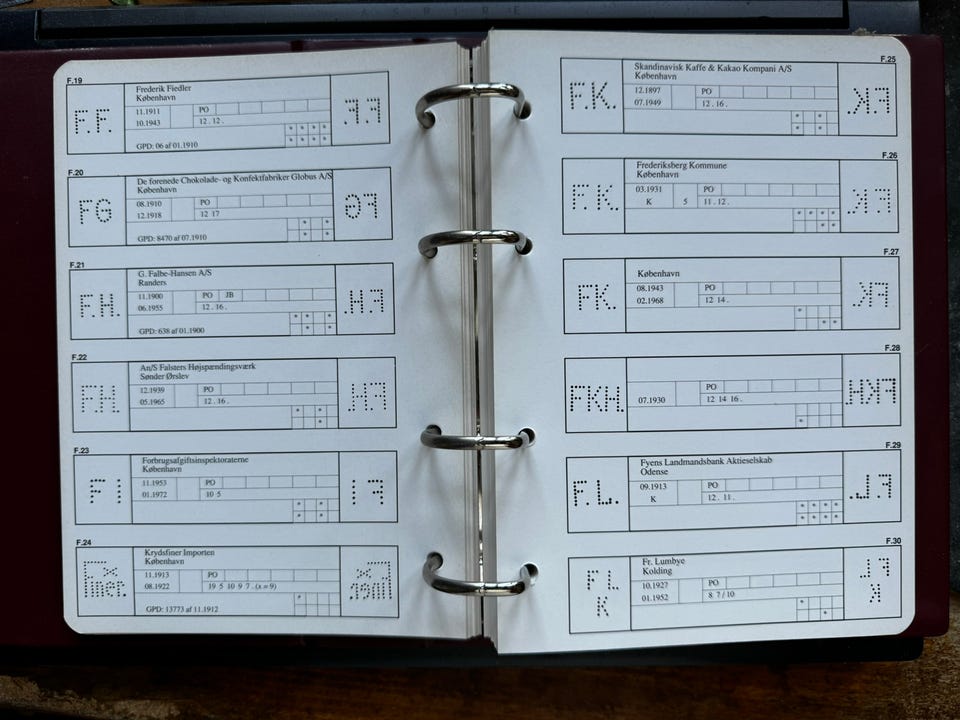 ASPIRE
F.19
F.F.
Frederik Fiedler
København
11.1911 PO
10.1943 12 . 12 .
* * * *
* * * *
GPD: 06 af 01.1910
F.20
FG
De forenede Chokolade- og Konfektfabriker Globus A/S
København
08.1910 PO
12.1918 12 17
* *
* *
GPD: 8470 af 07.1910
F.21
F.H.
G. Falbe-Hansen A/S
Randers
11.1900 PO JB
06.1955 12 . 16 .
* * *
* *
GPD: 638 af 01.1900
F.22
F.H.
An/S Falsters Højspændingsværk
Sønder Ørslev
12.1939 PO
05.1965 12 . 16 .
* *
*
F.23
FI
Forbrugsafgiftsinspektoraterne
København
11.1953 PO
01.1972 10 5
* *
* *
F.24
Fx
Imp.
Krydsfiner Importen
København
11.1913 PO
08.1922 19 5 10 9 7 . (x = 9)
*
GPD: 13773 af 11.1912
F.25
F.K.
Skandinavisk Kaffe & Kakao Kompani A/S
København
12.1897 PO
07.1949 12 . 16 .
* *
* *
F.26
F.K.
Frederiksberg Kommune
København
03.1931 PO
K 5 11 . 12 .
* * * *
*
F.27
FK.
København
08.1943 PO
02.1968 12 14 .
*
* *
F.28
FKH.
PO
07.1930 12 14 16 .
*
F.29
F.L.
Fyens Landmandsbank Aktieselskab
Odense
09.1913 PO
K 12 . 11 .
* * * *
* * * *
F.30
FL
K
Fr. Lumbye
Kolding
10.192? PO
01.1952 8 7 / 10
* *
*